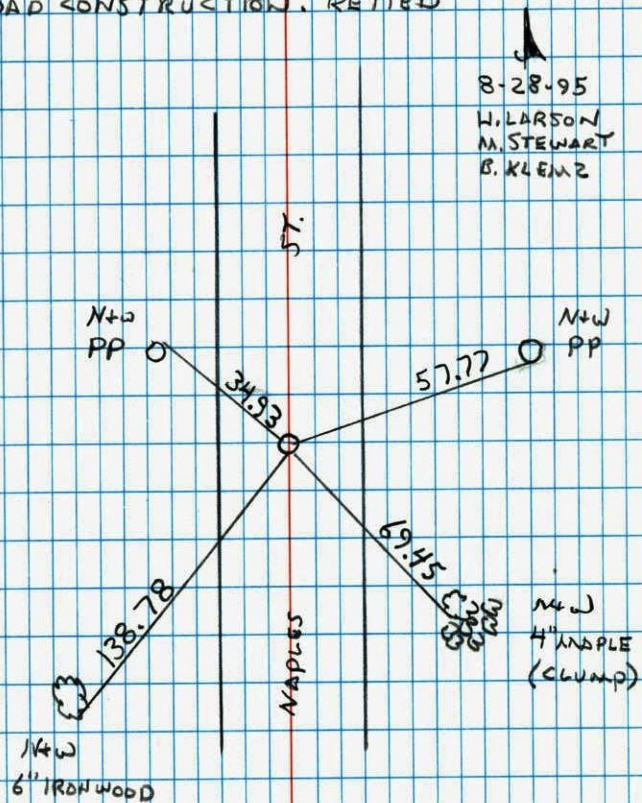 CONSTRUCTION. RETIED
8-28-95
W. LARSON
M. STEWART
B. KLEMZ
ST.
N+W
PP
N+W
PP
34.93
57.77
69.45
138.78
NAPLES
N+W
4" MAPLE
(CLUMP)
N+W
6" IRONWOOD